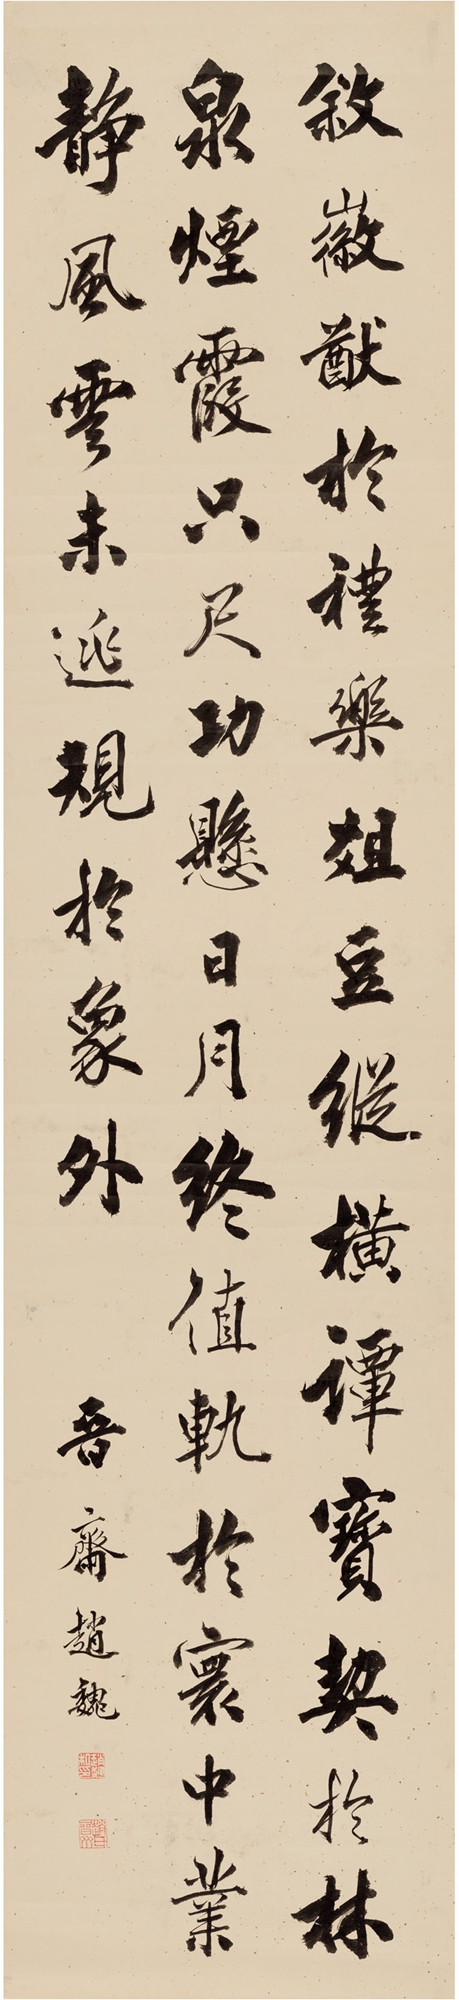 敘徽猷於禮樂俎豆縱橫譚寶契於林
泉煙霞只尺功懸日月終值軌於寰中業
靜風雲未延規於象外
晉齋趙魏